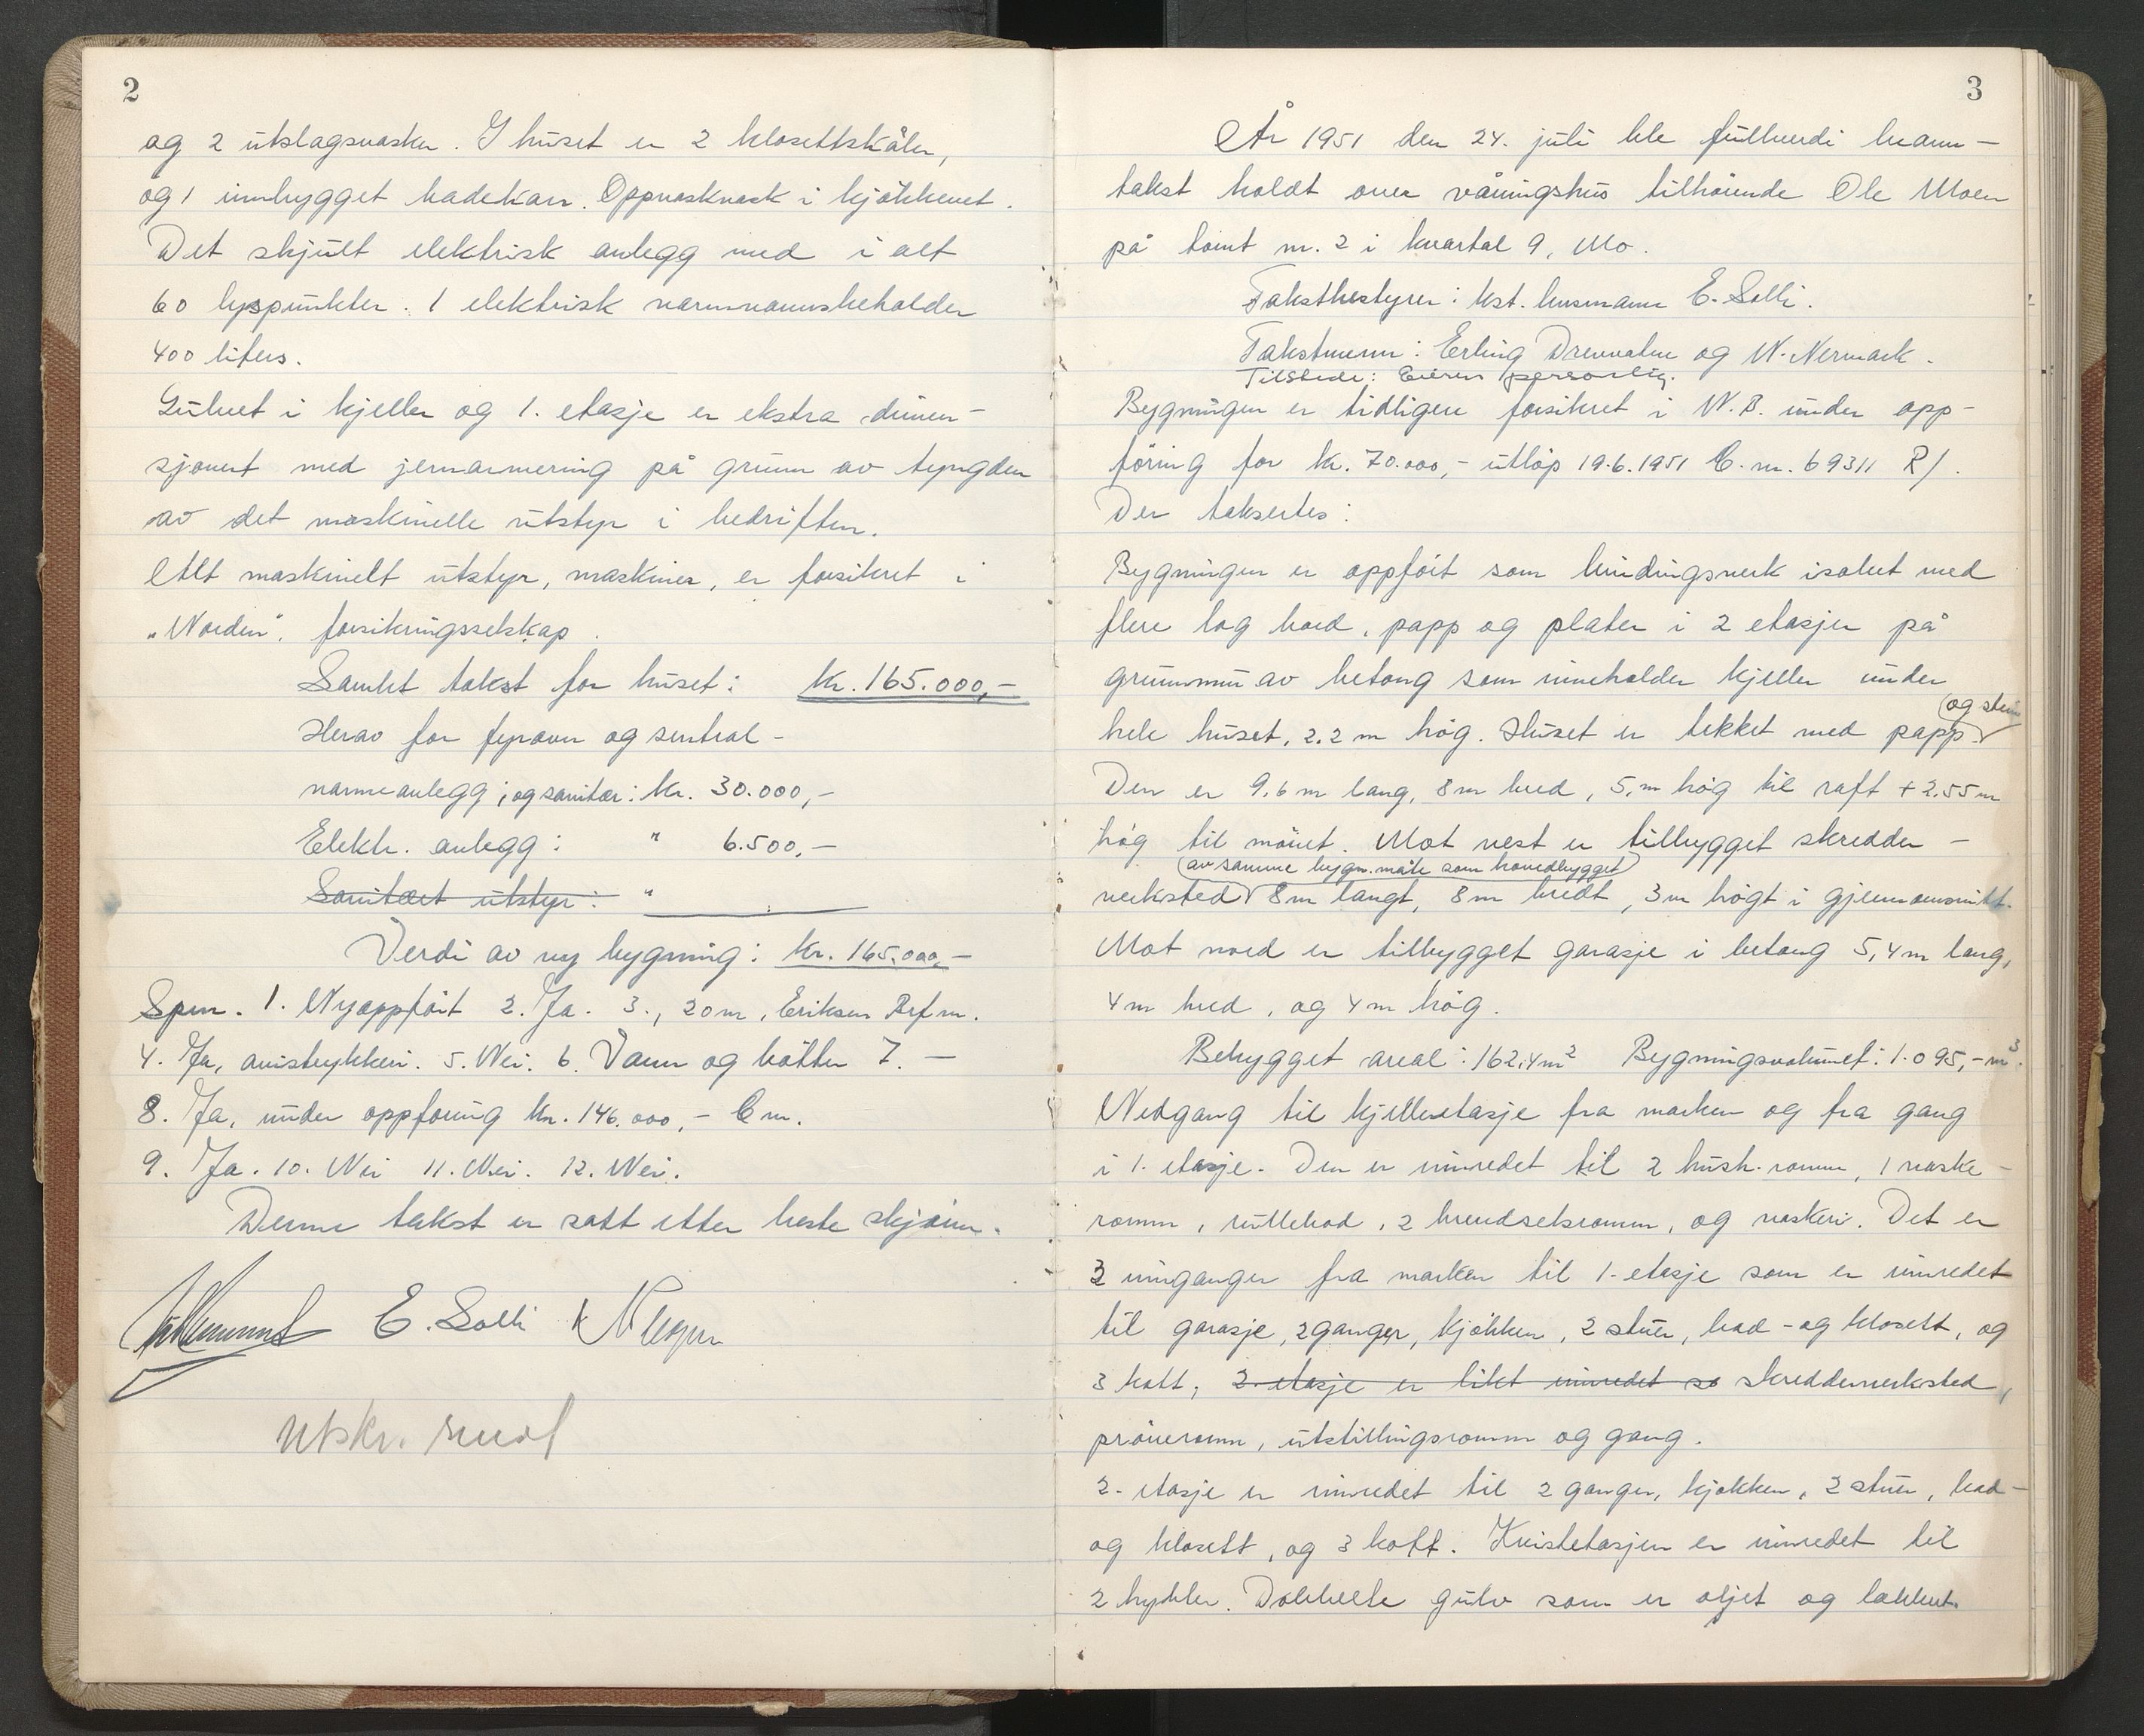 2
og 2 utslagsvasker. I huset er 2 klosettskåler,
og 1 innbygget badekar. Oppvaskvask i kjøkkenet.
Det skjult elektrisk anlegg med i alt
60 lyspunkter. 1 elektrisk varmvannsbeholder
400 liters.
Gulvet i kjeller og 1. etasje er ekstra dimen-
sjonert med jernarmering på grunn av tyngden
av det maskinelle utstyr i bedriften.
Alt maskinelt utstyr, maskiner, er forsikret i
„Norden". forsikringsselskap.
Samlet takst for huset: kr. 165.000,-
Herav for fyrovn og sentral-
varmeanlegg, og sanitær: kr. 30.000,-
Elektr. anlegg: " 6.500,-
Sanitært utstyr: "
Verdi av ny bygning: kr. 165.000,-
Spm. 1. Nyoppført 2. Ja. 3., 20 m, Eriksen Brf.nr.
4. Ja, avistrykkeri. 5. Nei. 6. Vann og bøtter 7. —
8. Ja, under oppføring kr. 146.000,- C nr.
9. Ja. 10. Nei 11. Nei. 12. Nei.
Denne takst er satt etter beste skjønn.
E. Solli
Utskr. sendt
3
År 1951 den 24. juli ble fullverdi brann-
takst holdt over våningshus tilhørende Ole Moen
på tomt nr. 2 i kvartal 9, Mo.
Takstbestyrer: kst. lensmann E. Solli.
Takstmenn: Erling Drevvatne og N. Nermark.
Tilstede: Eieren personlig.
Bygningen er tidligere forsikret i N.B. under opp-
føring for kr. 70.000,- utløp 19.6.1951 C. nr. 69311 R/.
Der taksertes:
Bygningen er oppført som bindingsverk isolert med
flere lag bord, papp og plater i 2 etasjer på
grunnmur av betong som inneholder kjeller under
og stein
hele huset, 2,2 m høg. Huset er tekket med papp.
Den er 9,6 m lang, 8 m bred, 5, m høg til raft + 2,55 m
høg til mønet. Mot vest er tilbygget skredder-
av samme bygn. måte som hovedbygget
verksted 8 m langt, 8 m bredt, 3 m høgt i gjennomsnitt.
Mot nord er tilbygget garasje i betong 5,4 m lang,
4 m bred, og 4 m høg.
Bebygget areal: 162,4 m² Bygningsvolumet: 1.095,- m³.
Nedgang til kjelleretasje fra marken og fra gang
i 1. etasje. Den er innredet til 2 hush. romm, 1 vaske-
romm, rullebod, 2 brendselsromm, og vaskeri. Det er
3 innganger fra marken til 1. etasje som er innredet
til garasje, 2 ganger, kjøkken, 2 stuer, bad- og klosett, og
3 kott, 2. etasje er likt innredet so skredderverksted,
prøveromm, utstillingsromm og gang.
2. etasje er innredet til 2 ganger, kjøkken, 2 stuer, bad-
og klosett, og 3 kott. Kvistetasjen er innredet til
2 hybler. Dobbelte gulv som er oljet og lakkert.